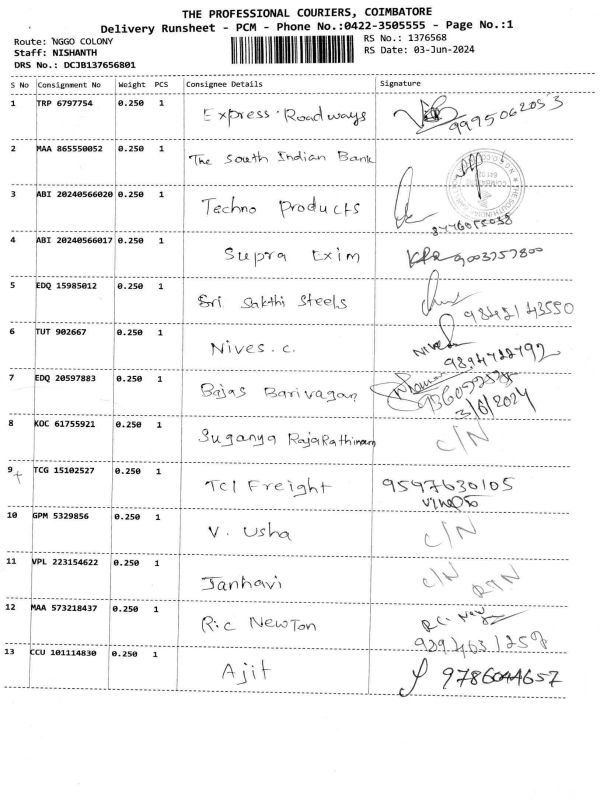 THE PROFESSIONAL COURIERS, COIMBATORE
Delivery Runsheet - PCM - Phone No.:0422-3505555 - Page No.:1
Route: NGGO COLONY RS No.: 1376568
Staff: NISHANTH RS Date: 03-Jun-2024
DRS No.: DCJB137656801
S No Consignment No Weight PCS Consignee Details Signature
1 TRP 6797754 0.250 1 Express Roadways 9995062053
2 MAA 865550052 0.250 1 The South Indian Bank
3 ABI 20240566020 0.250 1 Techno Products
4 ABI 20240566017 0.250 1 Supra Exim KPR 9003757800
5 EDQ 15985012 0.250 1 Sri Sakthi Steels 9842143550
6 TUT 902667 0.250 1 Nives. c.
9894728792
7 EDQ 20597883 0.250 1 Bajas Barivagan
3/6/2024
8 KOC 61755921 0.250 1 Suganya RajaRathinam C/N
9 TCG 15102527 0.250 1 TCI Freight 9597630105
10 GPM 5329856 0.250 1 V. Usha C/N
11 VPL 223154622 0.250 1 Janhavi C/N
12 MAA 573218437 0.250 1 R.c Newton
13 CCU 101114830 0.250 1 Ajit 9786044657